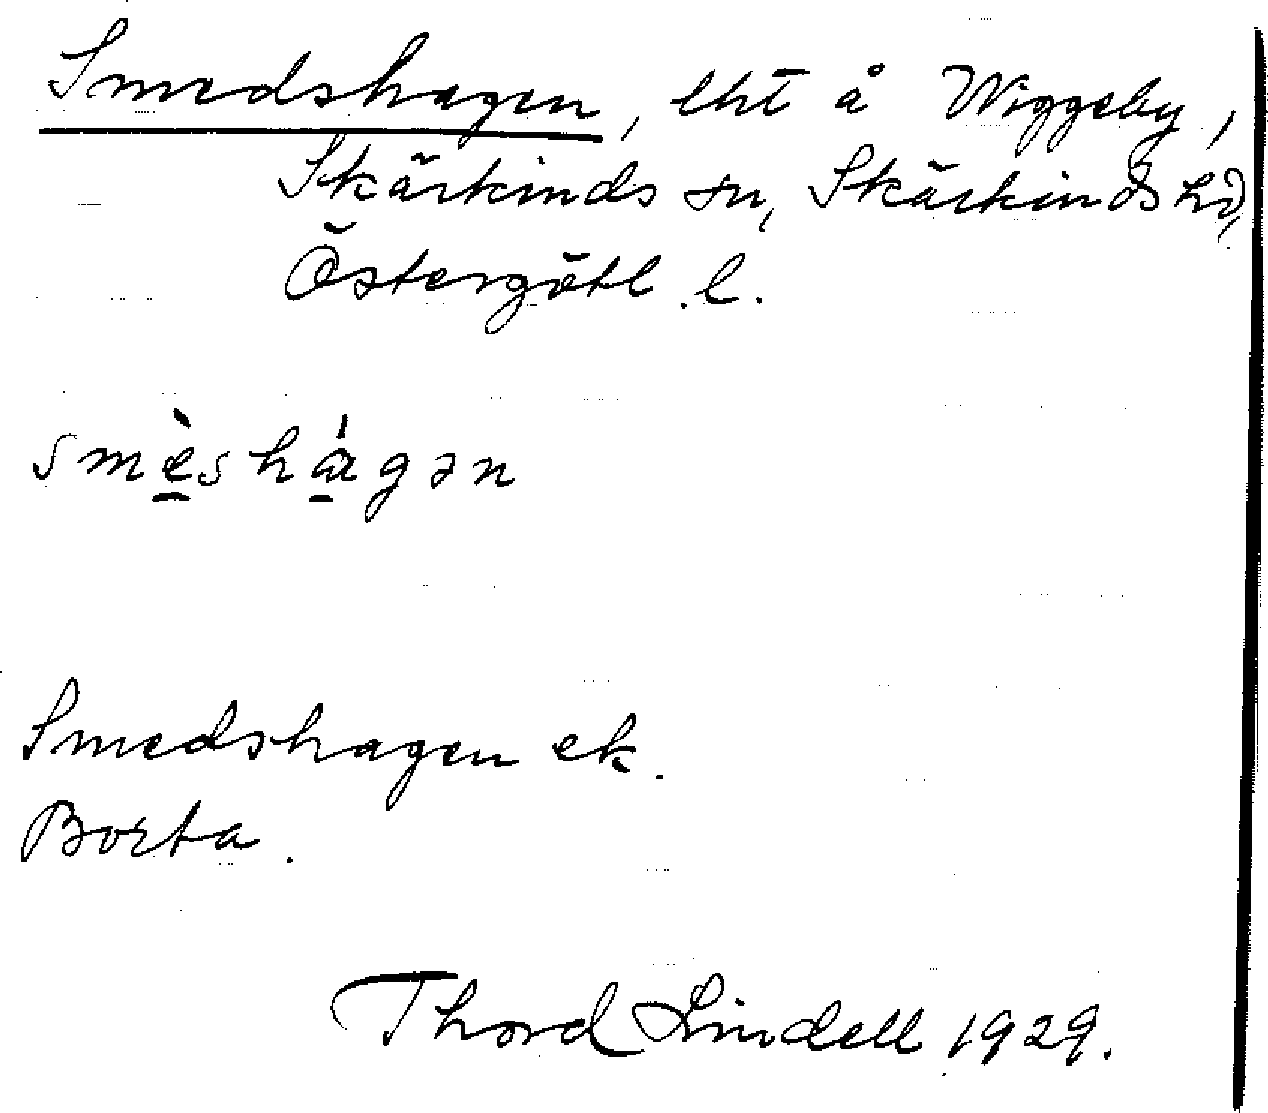 Smedshagen, lht å Wiggeby,
Skärkinds sn, Skärkinds hd,
Östergötl. l.
smèshágən
Smedshagen ek.
Borta.
Thord Lindell 1929.